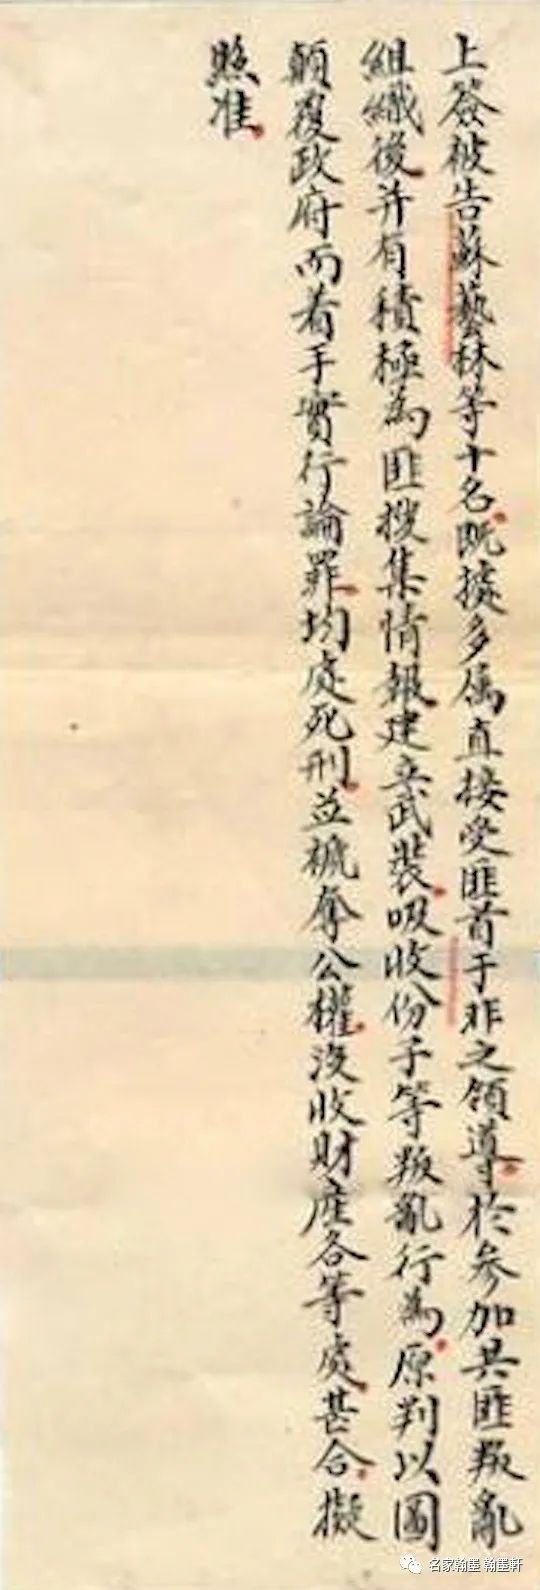 上簽被告蘇藝林等十名既據多屬直接受匪首于非之領導於參加共匪叛亂
組織後并有積極為匪搜集情報建立武裝吸收份子等叛亂行為原判以圖
顛覆政府而着手實行論罪均處死刑並褫奪公權沒收財產各等處甚合擬
照准
名家翰墨 翰墨軒